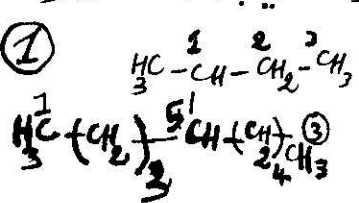 1
1 2 3
H3C-CH-CH2-CH3
1 5
H3C-(CH2)3-CH-(CH2)4-CH3 3